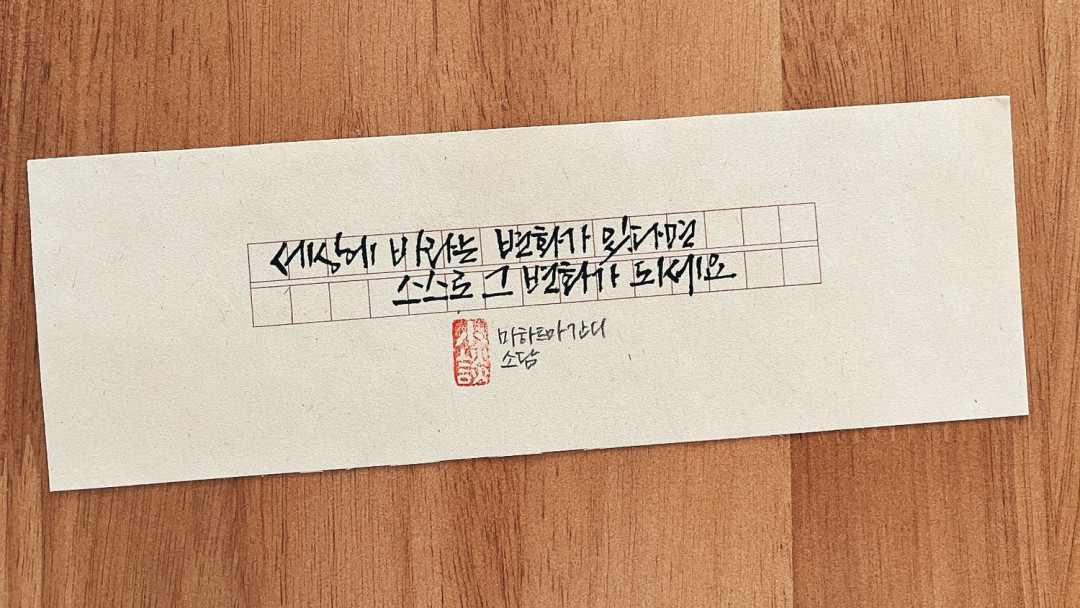 세상에 바라는 변화가 있다면
스스로 그 변화가 되세요
마하트마 간디
소담